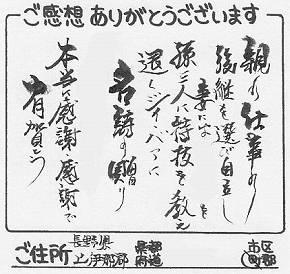 ご感想ありがとうございます
親の仕事の
後継を選び自立し
妻には を
孫三人に特技を教え
還くジイ・バァに
言語の贈り
本当に感謝感謝で
有賀とう
ご住所 長野県 都道府県
上伊那郡 市区町郡